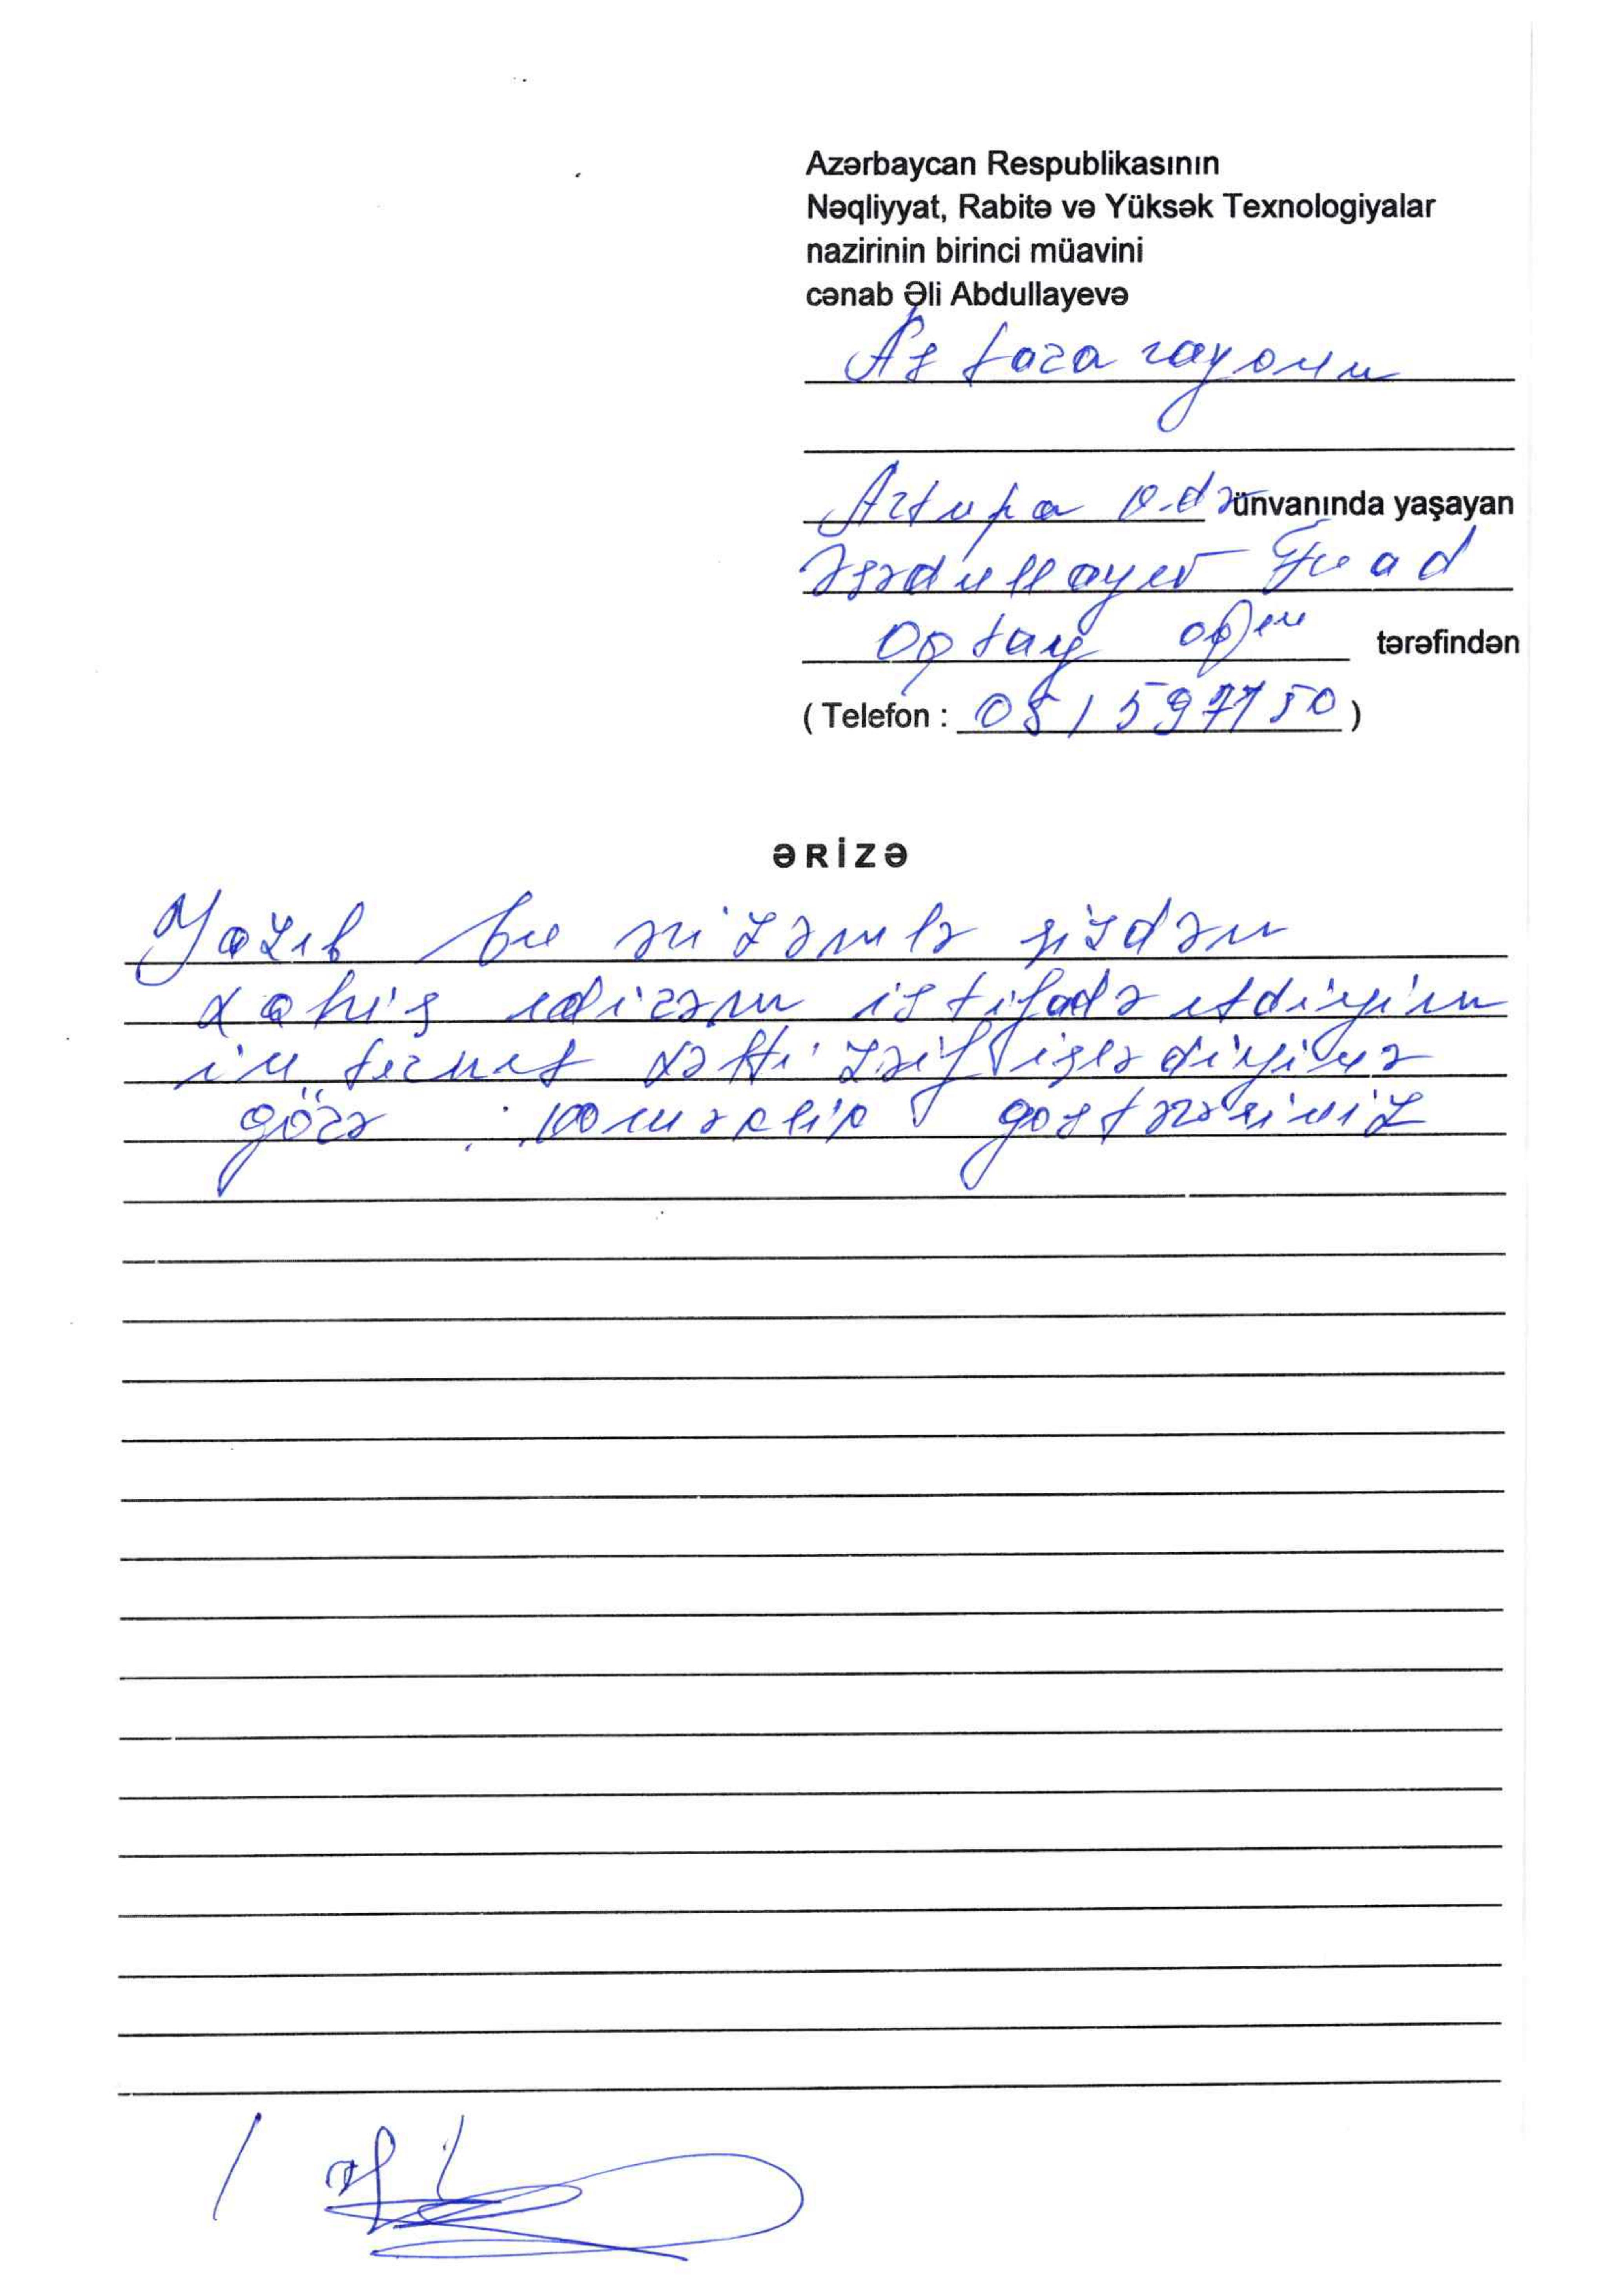 Azərbaycan Respublikasının
Nəqliyyat, Rabitə və Yüksək Texnologiyalar
nazirinin birinci müavini
cənab Əli Abdullayevə
Astara rayonu
Artupa q-də ünvanında yaşayan
Əsədullayev Fuad
Oqtay oğlu tərəfindən
( Telefon : 051 597 71 50 )
ƏRİZƏ
Yazıb bu ərizəmlə sizdən
xahiş edirəm istifadə etdiyim
internet xətti zəif işlədiyinə
görə köməklik göstərəsiniz